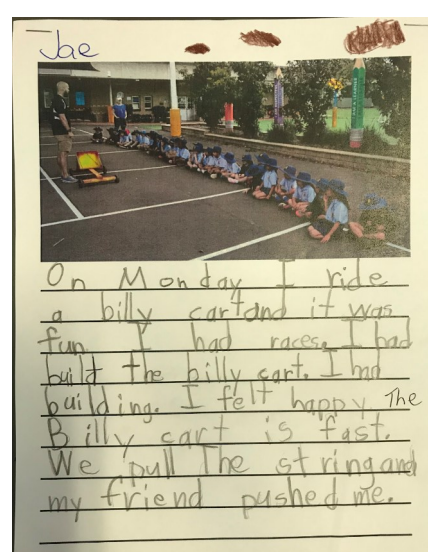 Jae
On Monday I ride
a billy cart and it was
fun. I had races. I had
build the billy cart. I had
building. I felt happy The
Billy cart is fast.
We pull The string and
my friend pushed me.